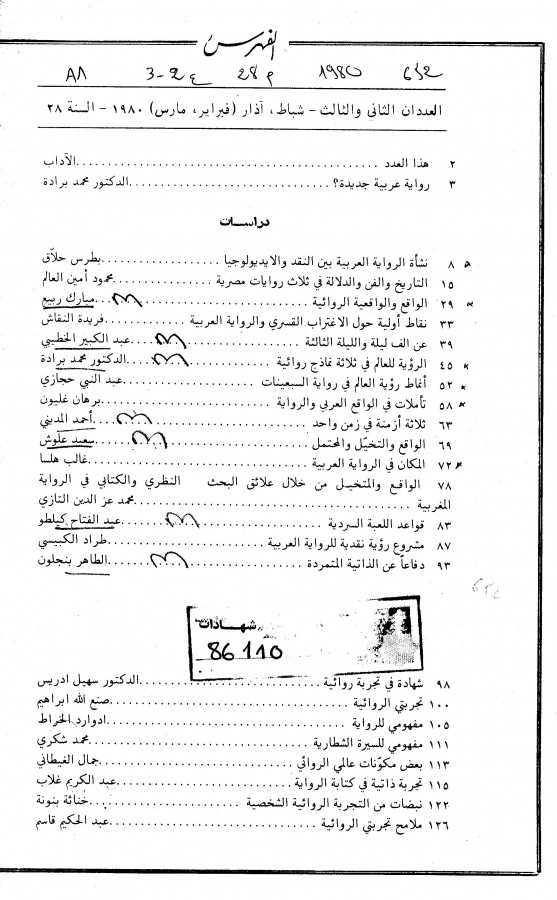 الفهرس
٨٨ 3-2 ع 28 م 1980 632
العددان الثاني والثالث - شباط، آذار (فبراير، مارس) ١٩٨٠ - السنة ٢٨
٢ هذا العدد ............ الآداب
٣ رواية عربية جديدة؟ ............ الدكتور محمد برادة
دراسات
٨ نشأة الرواية العربية بين النقد والايديولوجيا ............ بطرس حلاق
١٥ التاريخ والفن والدلالة في ثلاث روايات مصرية ............ محمود أمين العالم
٢٩ الواقع والواقعية الروائية ............ مبارك ربيع
٣٣ نقاط أولية حول الاغتراب القسري والرواية العربية ............ فريدة النقاش
٣٩ عن الف ليلة والليلة الثالثة ............ عبد الكبير الخطيبي
٤٥ الرؤية للعالم في ثلاثة نماذج روائية ............ الدكتور محمد برادة
٥٢ أنماط رؤية العالم في رواية السبعينات ............ عبد النبي حجازي
٥٨ تأملات في الواقع العربي والرواية ............ برهان غليون
٦٣ ثلاثة أزمنة في زمن واحد ............ أحمد المديني
٦٩ الواقع والتخيّل والمحتمل ............ سعيد علوش
٧٢ المكان في الرواية العربية ............ غالب هلسا
٧٨ الواقع والمتخيل من خلال علائق البحث النظري والكتابي في الرواية
المغربية ............ محمد عز الدين التازي
٨٣ قواعد اللعبة السردية ............ عبد الفتاح كيلطو
٨٧ مشروع رؤية نقدية للرواية العربية ............ طراد الكبيسي
٩٣ دفاعاً عن الذاتية المتمردة ............ الطاهر بنجلون
شهادات
86110
٩٨ شهادة في تجربة روائية ............ الدكتور سهيل ادريس
١٠٠ تجربتي الروائية ............ صنع الله ابراهيم
١٠٥ مفهومي للرواية ............ ادوارد الخراط
١١١ مفهومي للسيرة الشطارية ............ محمد شكري
١١٣ بعض مكوّنات عالمي الروائي ............ جمال الغيطاني
١١٥ تجربة ذاتية في كتابة الرواية ............ عبد الكريم غلاب
١٢٢ نبضات من التجربة الروائية الشخصية ............ خناثة بنونة
١٢٦ ملامح تجربتي الروائية ............ عبد الحكيم قاسم